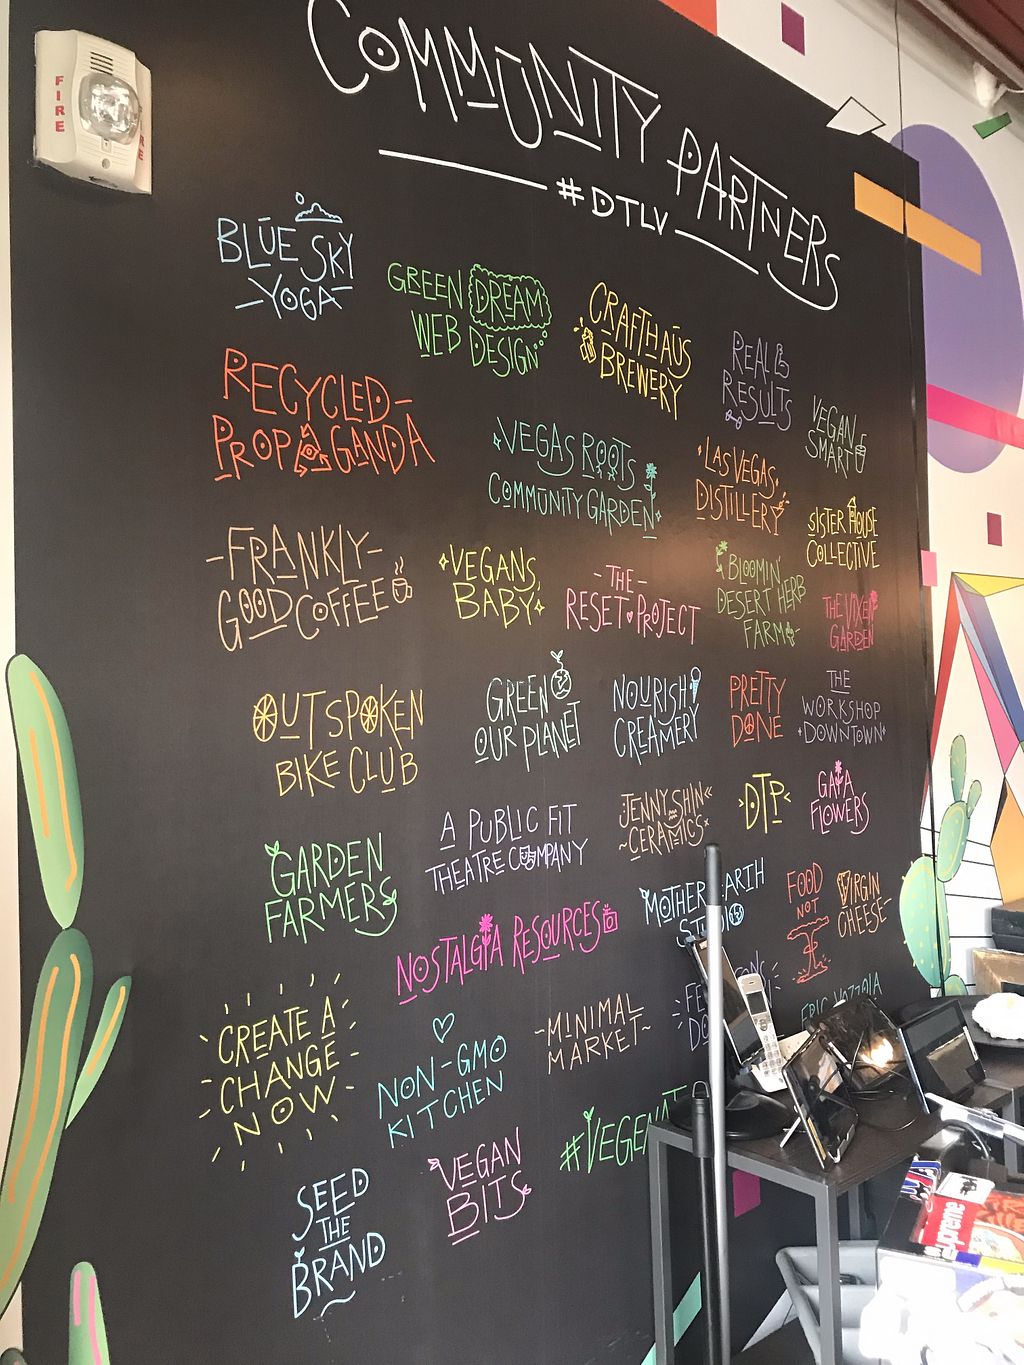 FIRE
COMMUNITY PARTNERS
#DTLV
BLUE SKY
YOGA
GREEN DREAM
WEB DESIGN
CRAFTHAUS
BREWERY
REAL
RESULTS
VEGAN
SMART
RECYCLED
PROPAGANDA
VEGAS ROOTS
COMMUNITY GARDEN
LAS VEGAS
DISTILLERY
SISTER HOUSE
COLLECTIVE
FRANKLY
GOOD COFFEE
VEGANS,
BABY
THE
RESET PROJECT
BLOOMIN'
DESERT HERB
FARM
THE VIXEN
GARDEN
OUTSPOKEN
BIKE CLUB
GREEN
OUR PLANET
NOURISH
CREAMERY
PRETTY
DONE
THE
WORKSHOP
DOWNTOWN
GARDEN
FARMERS
A PUBLIC FIT
THEATRE COMPANY
JENNY SHIN
CERAMICS
DTP
GAIA
FLOWERS
NOSTALGIA RESOURCES
MOTHER EARTH
FOOD
NOT
VIRGIN
CHEESE
CREATE A
CHANGE
NOW
NON-GMO
KITCHEN
-MINIMAL
MARKET-
ERIC
SEED
THE
BRAND
VEGAN
BITS
Supreme